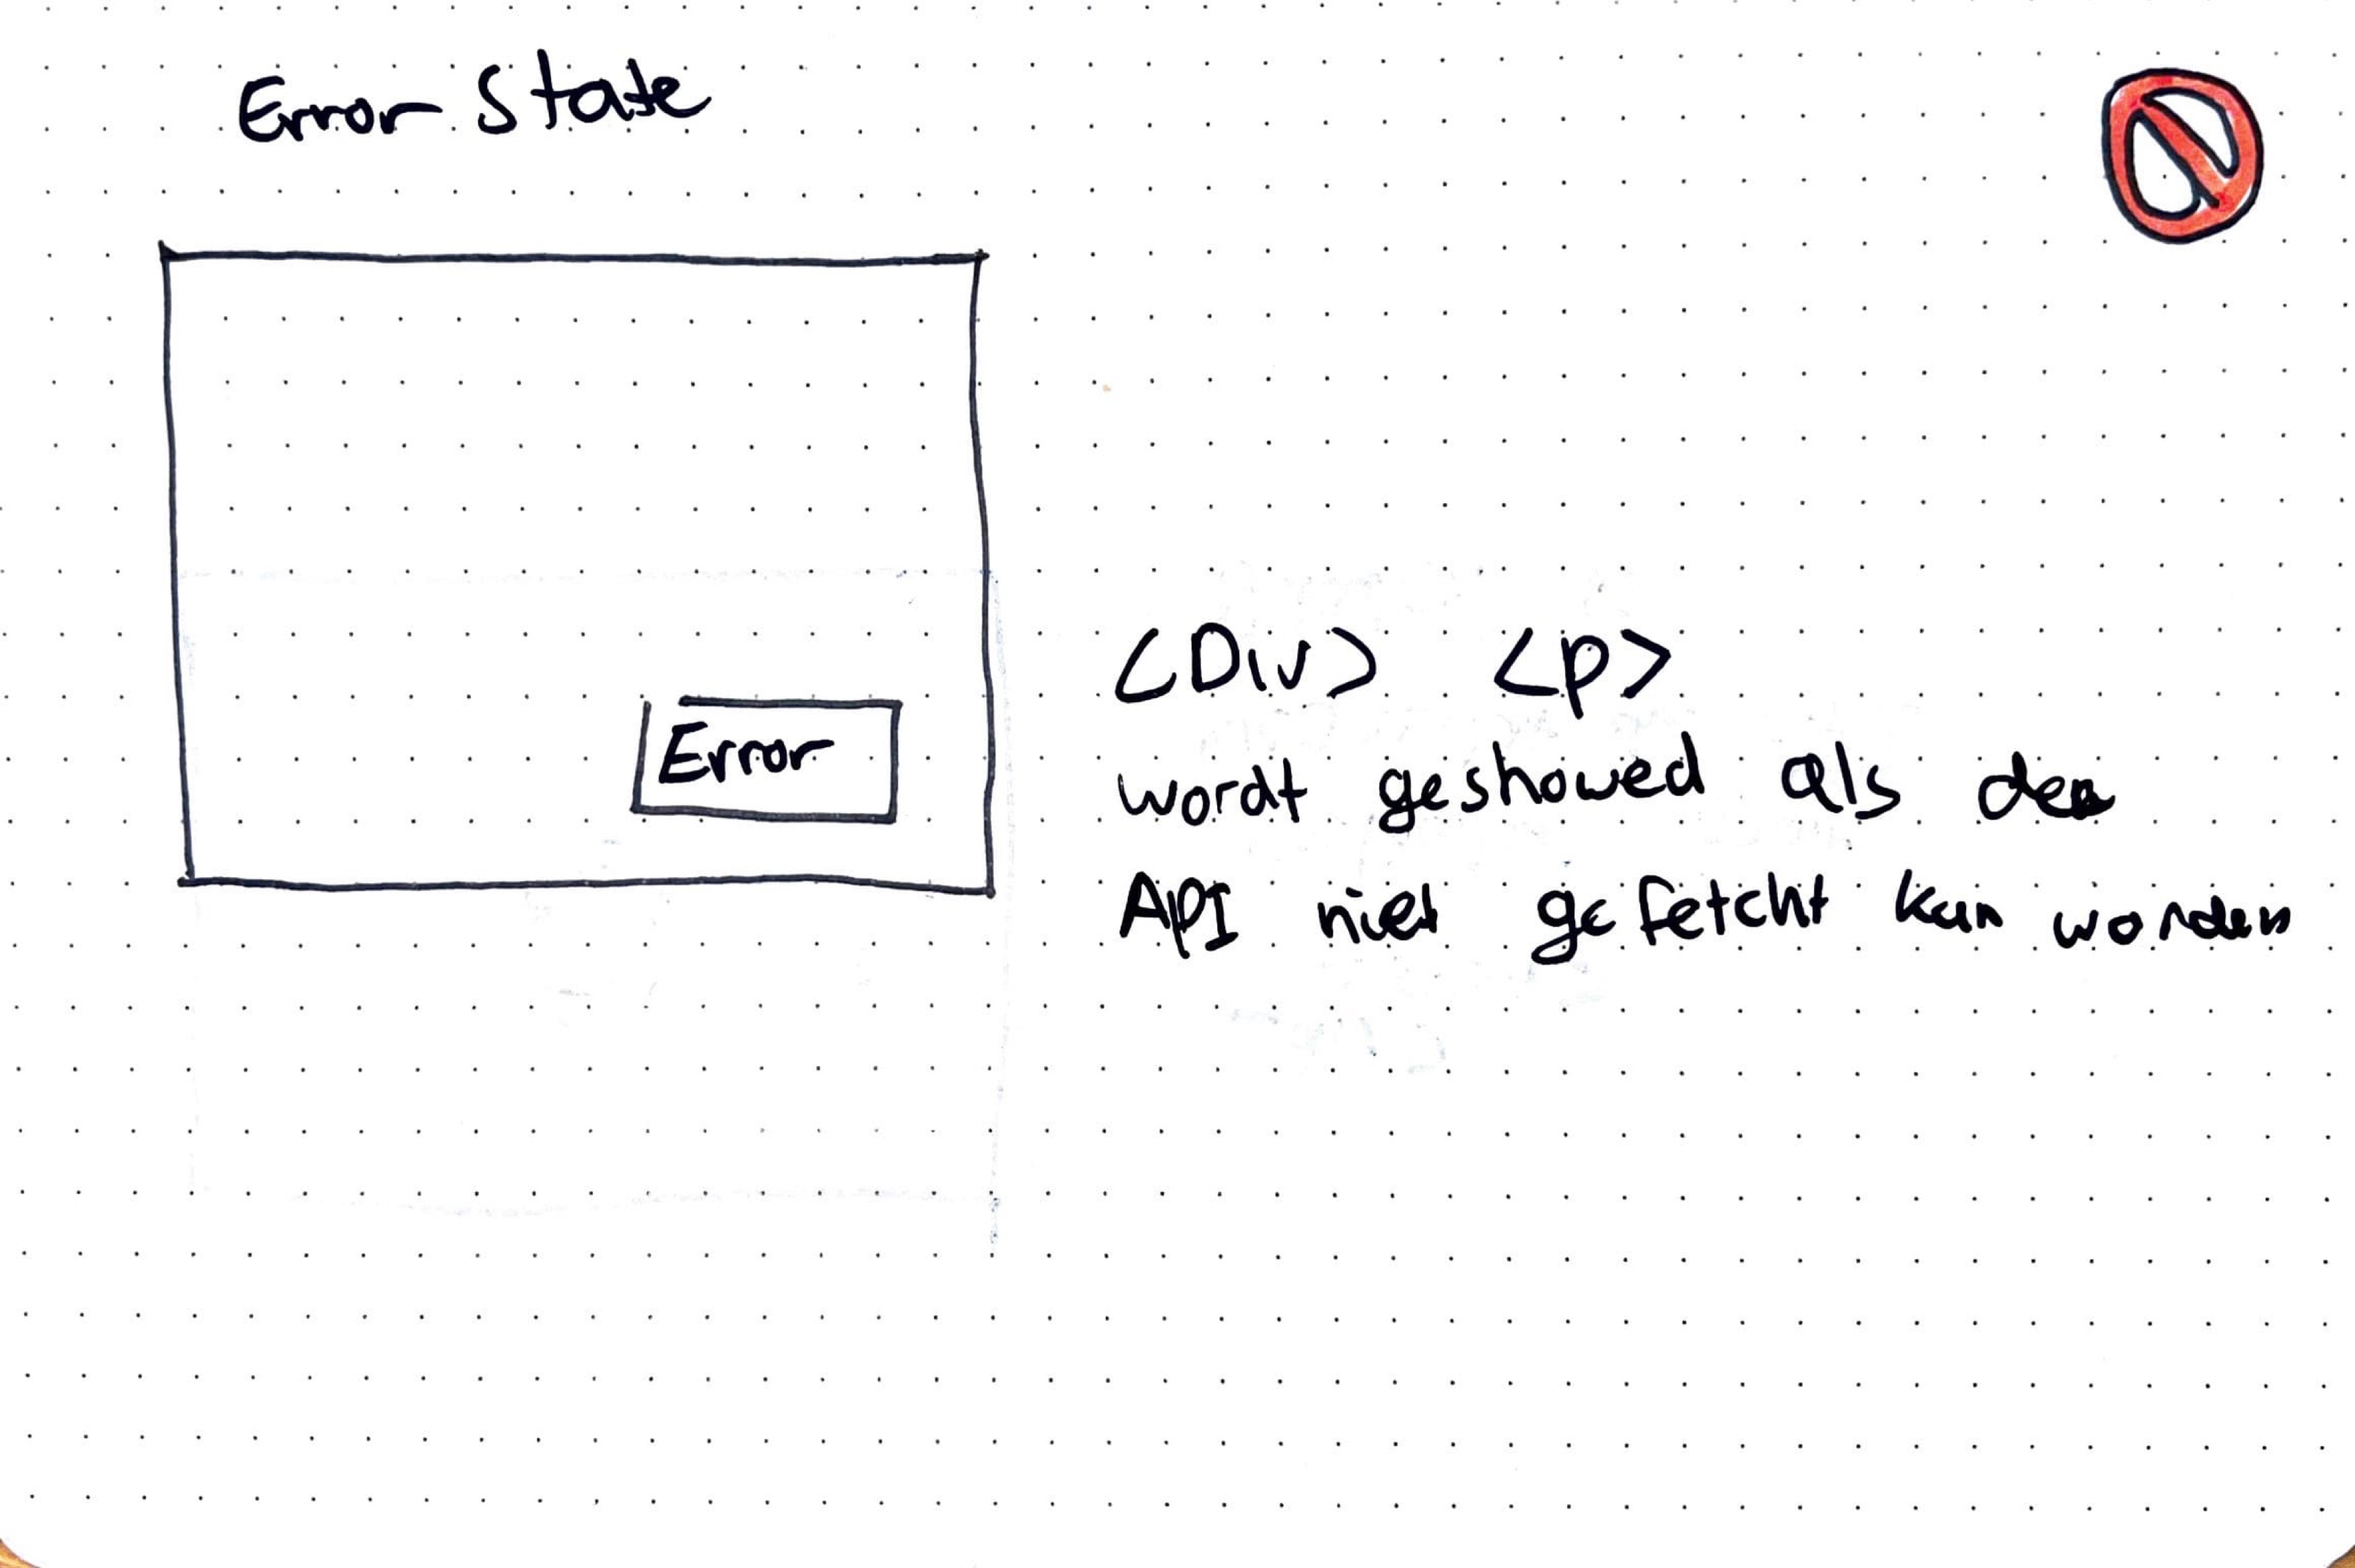 Error State
Error
<Div> <p>
wordt geshowed als de
API niet gefetcht kan worden